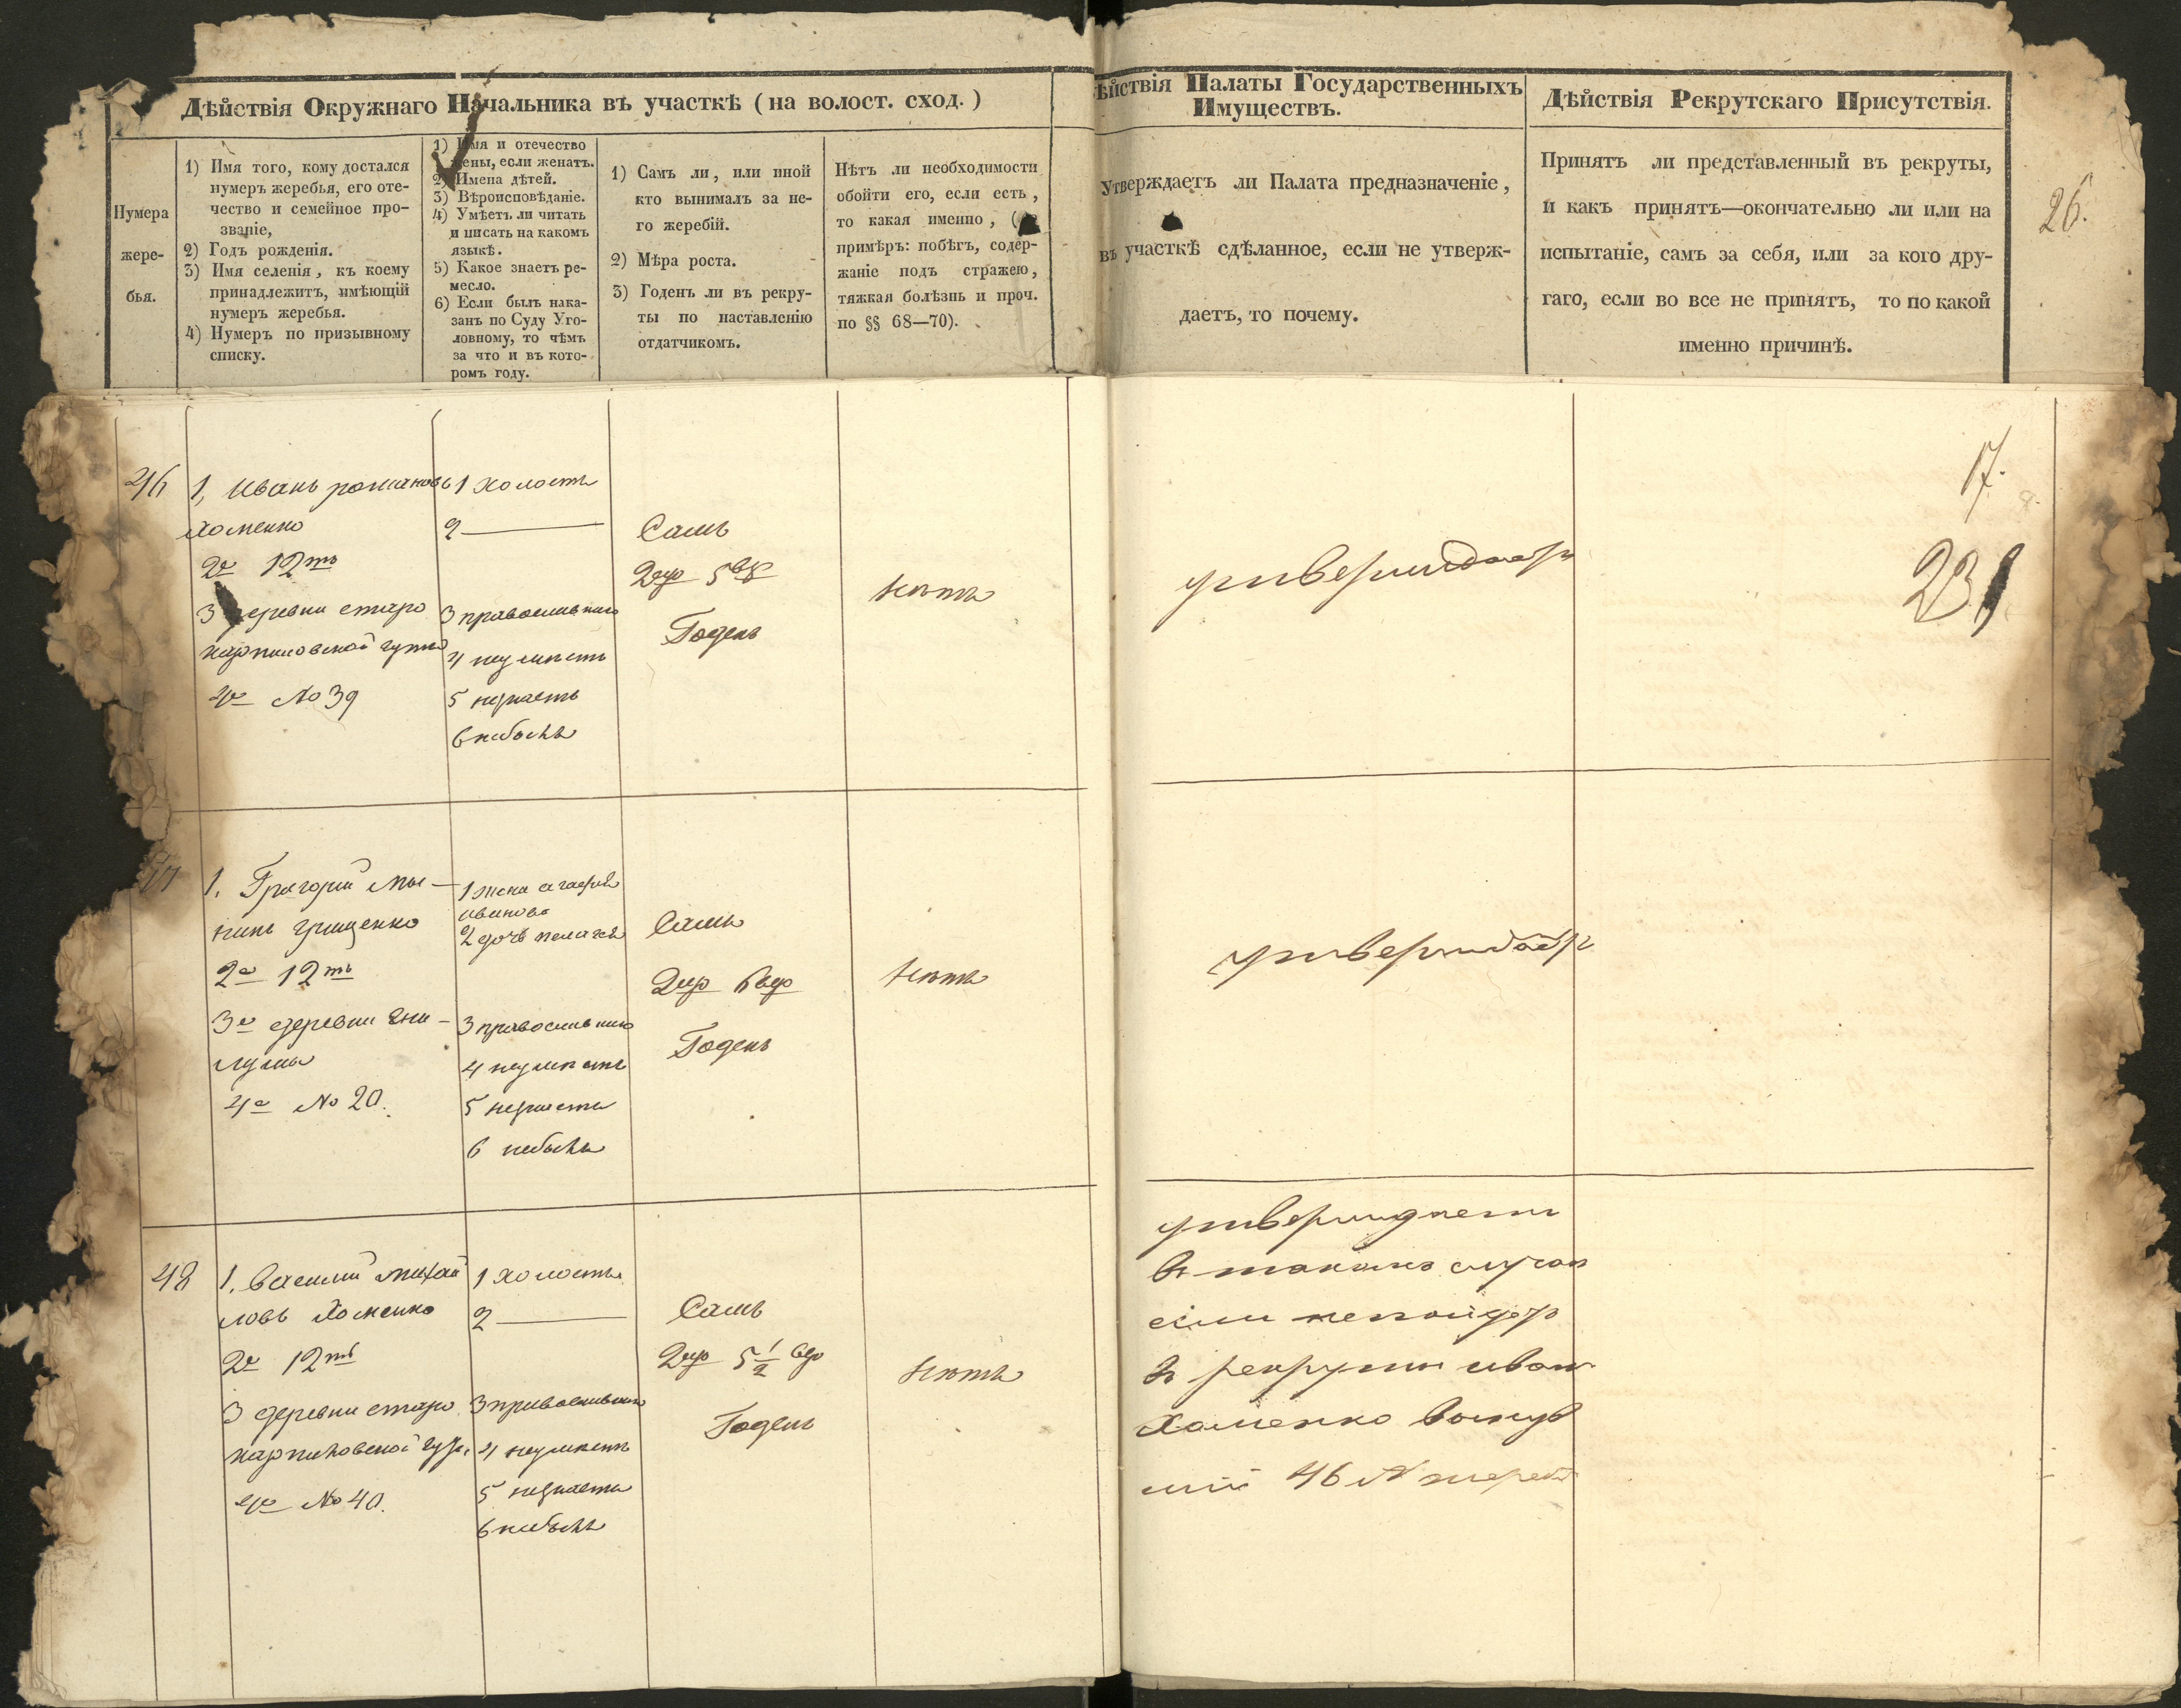 Дѣйствія Окружнаго Начальника въ участкѣ (на волост. сход.)
Нумера
жере-
бья.
1) Имя того, кому достался
нумеръ жеребья, его оте-
чество и семейное про-
званіе,
2) Годъ рожденія.
3) Имя селенія, къ коему
принадлежитъ, имѣющій
нумеръ жеребья.
4) Нумеръ по призывному
списку.
1) Имя и отечество
жены, если женатъ.
2) Имена дѣтей.
3) Вѣроисповѣданіе.
4) Умѣетъ ли читать
и писать на какомъ
языкѣ.
5) Какое знаетъ ре-
месло.
6) Если былъ нака-
занъ по Суду Уго-
ловному, то чѣмъ
за что и въ кото-
ромъ году.
1) Самъ ли, или иной
кто вынималъ за не-
го жеребій.
2) Мѣра роста.
3) Годенъ ли въ рекру-
ты по наставленію
отдатчикомъ.
Нѣтъ ли необходимости
обойти его, если есть,
то какая именно, (
примѣръ: побѣгъ, содер-
жаніе подъ стражею,
тяжкая болѣзнь и проч.
по §§ 68—70).
ѣйствія Палаты Государственныхъ
Имуществъ.
Утверждаетъ ли Палата предназначеніе,
въ участкѣ сдѣланное, если не утверж-
даетъ, то почему.
Дѣйствія Рекрутскаго Присутствія.
Принятъ ли представленный въ рекруты,
и какъ принятъ—окончательно ли или на
испытаніе, самъ за себя, или за кого дру-
гаго, если во все не принятъ, то по какой
именно причинѣ.
26.
17.
23
46
1, Иванъ романовъ
Хоменко
2е 12тъ
3 деревни старо
карпиловской гуты
4е №39
1 холостъ
2 —
3 православнаго
4 неумѣетъ
5 незнаетъ
6 небылъ
Самъ
5
Годенъ
Нѣтъ
утверждаетъ
1. Григорій
гриценко
2е 12тъ
3е деревни
4е №20.
1 жена агафія
иванова
2 дочь пелагея
3 православнаго
4 неумѣетъ
5 незнаетъ
6 небылъ
Самъ
Годенъ
Нѣтъ
утверждаетъ
48
1. Василий михай
ловъ Хоменко
2е 12тъ
3 деревни старо
карпиловской гуты
4е №40.
1 холостъ
2 —
3 православнаго
4 неумѣетъ
5 незнаетъ
6 небылъ
Самъ
5 1/2 вер
Годенъ
Нѣтъ
утверждаетъ
въ такомъ случаѣ
если непойдетъ
въ рекруты иванъ
Хоменко вынув
шій 46 № жереб